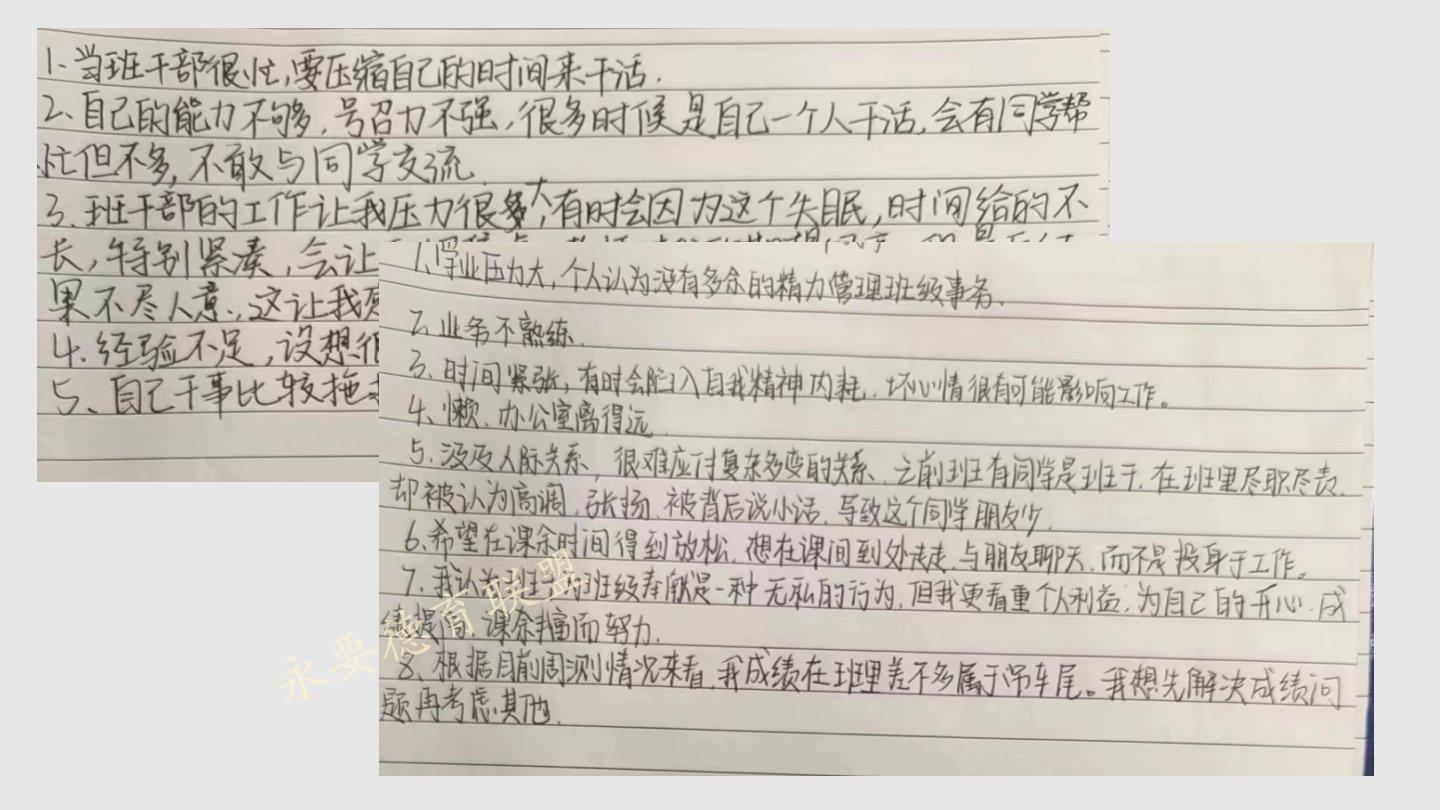 1.当班干部很忙,要压缩自己的时间来干活.
2.自己的能力不够,号召力不强,很多时候是自己一个人干活,会有同学帮
忙但不多,不敢与同学交流.
3.班干部的工作让我压力很大,有时会因为这个失眠,时间给的不
长,特别紧凑,会让
果不尽人意,这让我
4.经验不足,设想很
5、自己干事比较拖
1.学业压力大,个人认为没有多余的精力管理班级事务.
2.业务不熟练.
3.时间紧张,有时会陷入自我精神内耗.坏心情很有可能影响工作。
4、懒.办公室离得远.
5.涉及人际关系,很难应付复杂多变的关系.之前班有同学是班干,在班里尽职尽责,
却被认为高调,张扬.被背后说小话.导致这个同学朋友少.
6.希望在课余时间得到放松.想在课间到处走走.与朋友聊天.而不是投身于工作。
7.我认为班干为班级奉献是一种无私的行为,但我更看重个人利益,为自己的开心.成
绩提高.课余丰富而努力.
8.根据目前周测情况来看,我成绩在班里差不多属于吊车尾。我想先解决成绩问
题再考虑其他.
永要德育联盟